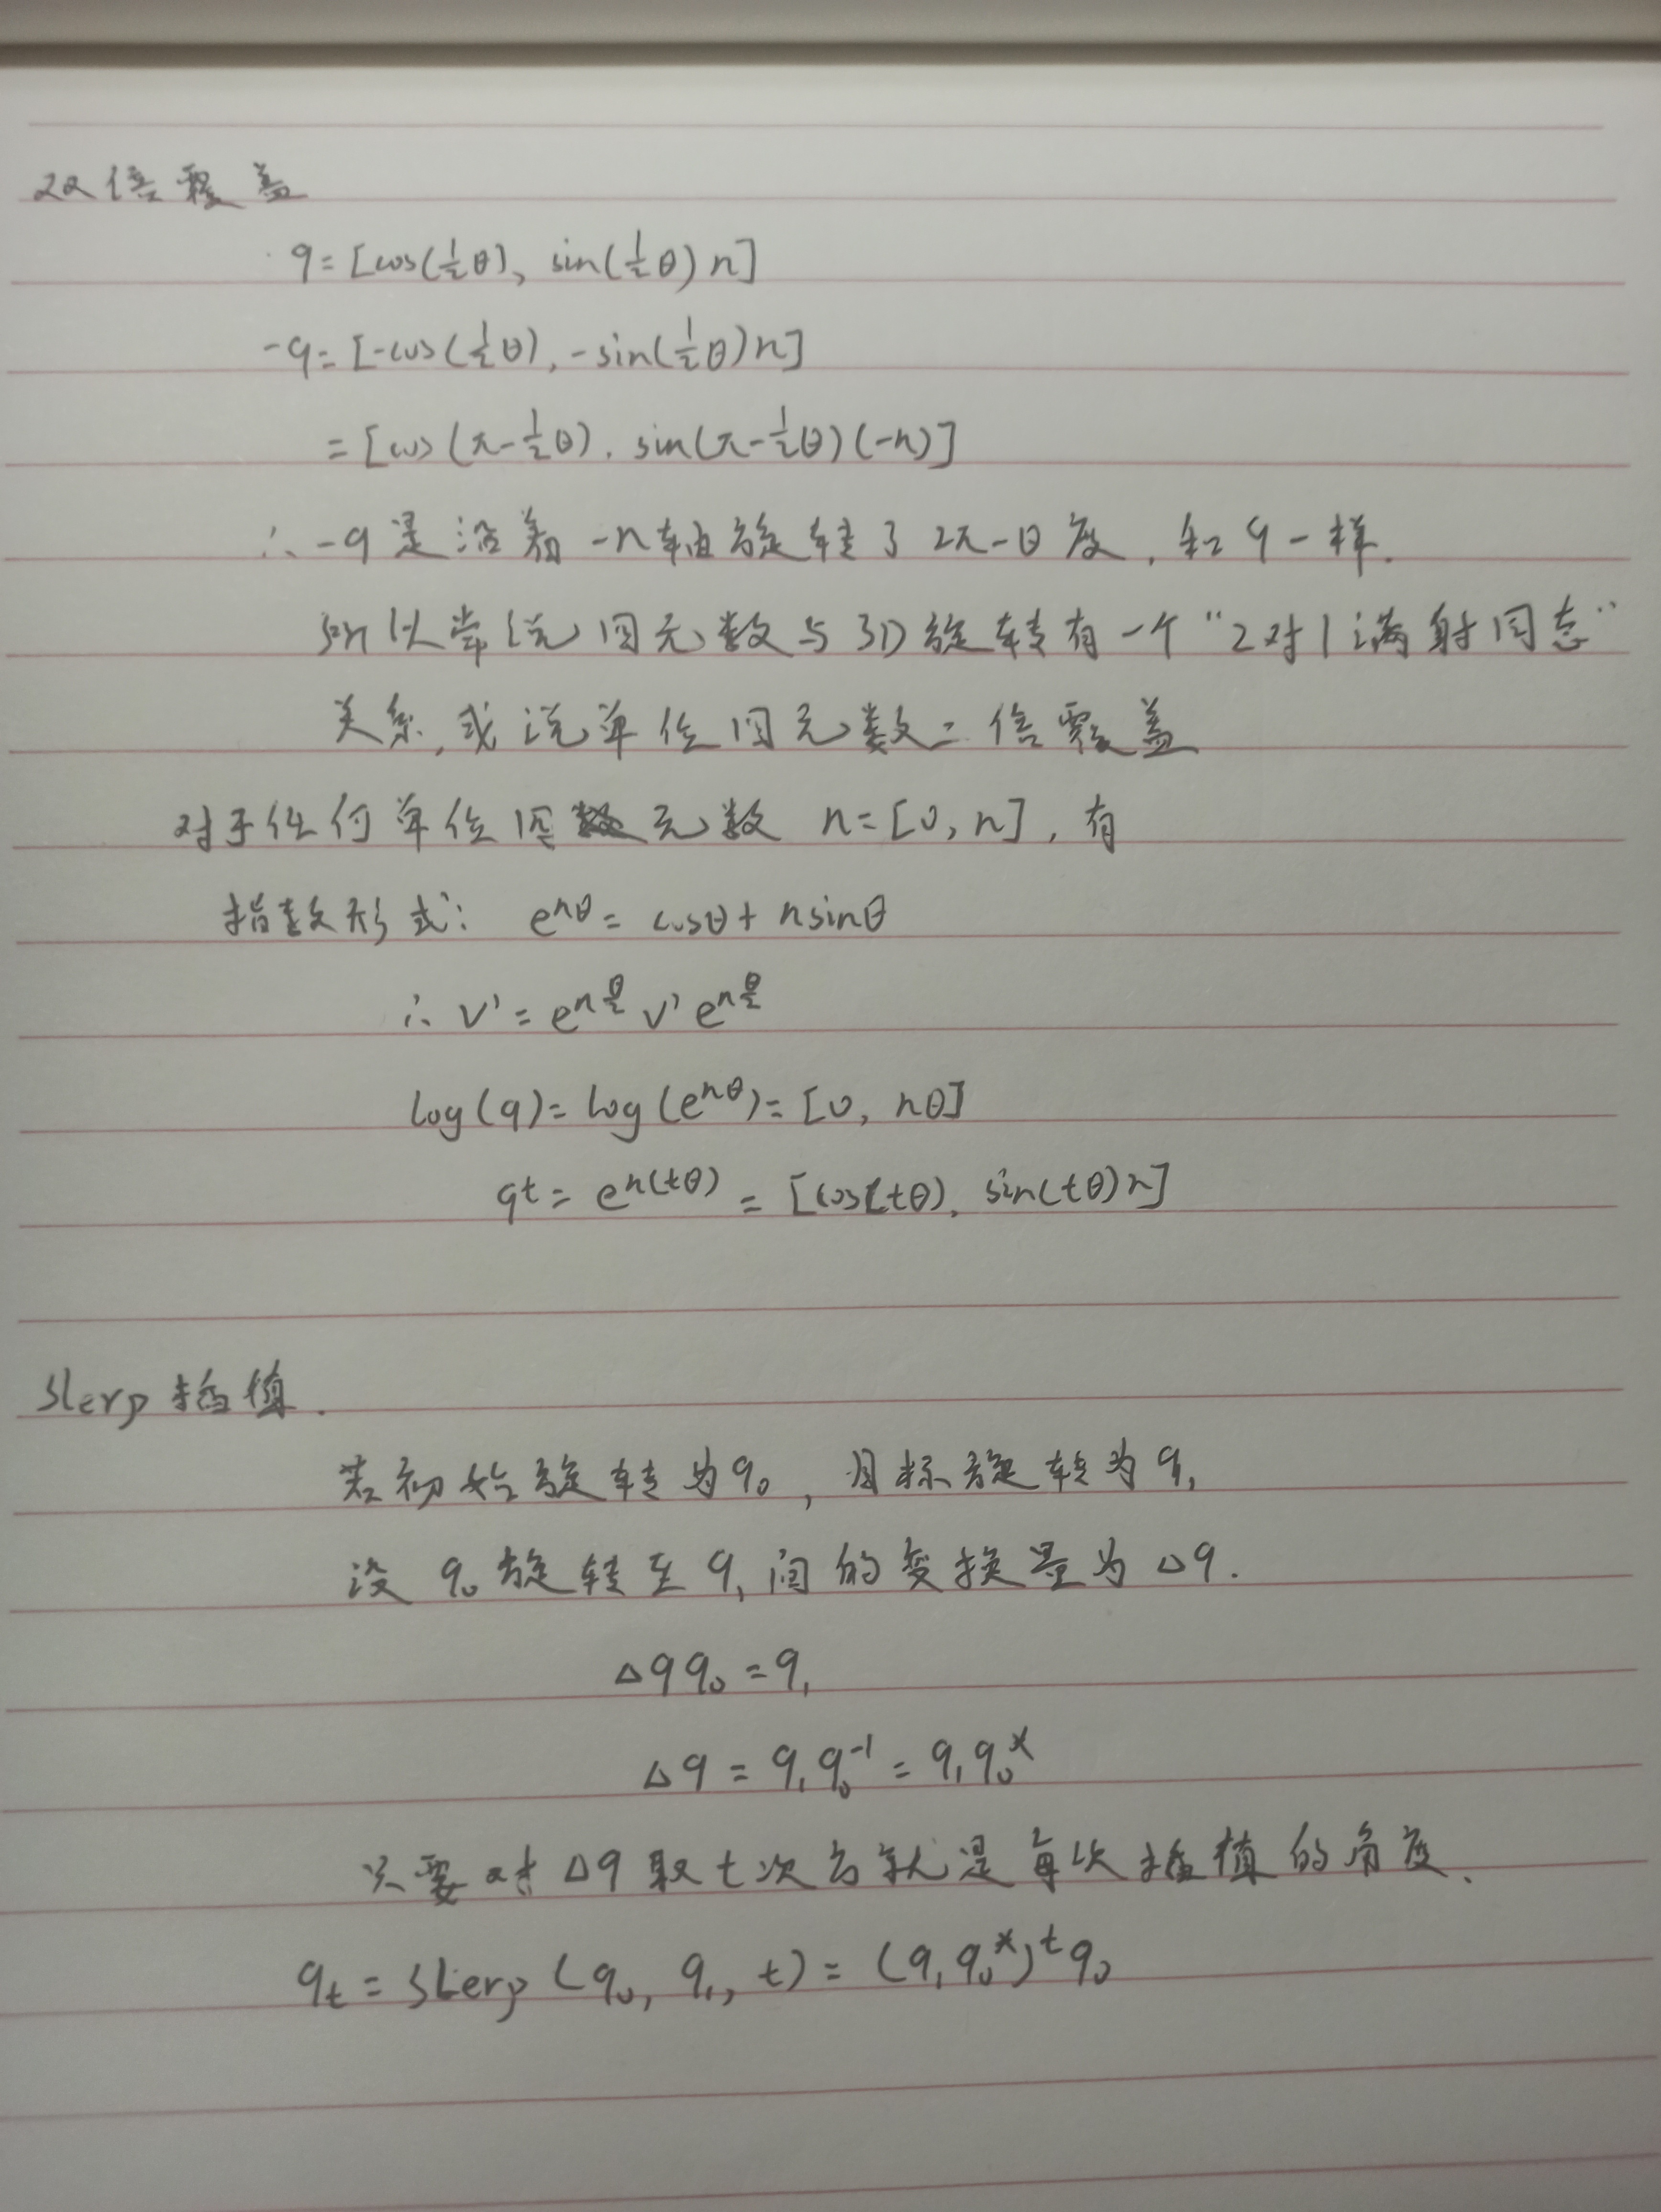 双倍覆盖
q=[cos(½θ), sin(½θ)n]
-q=[-cos(½θ), -sin(½θ)n]
=[cos(π-½θ), sin(π-½θ)(-n)]
∴ -q是沿着-n轴旋转了2π-θ度, 和q一样.
所以常说四元数与3D旋转有一个"2对1满射同态"
关系, 或说单位四元数二倍覆盖
对于任何单位四元数 n=[0, n], 有
指数形式: e^{nθ}= cosθ+ nsinθ
∴ v'= e^{n\frac{θ}{2}} v' e^{n\frac{θ}{2}}
log(q)= log(e^{nθ})= [0, nθ]
q^t= e^{n(tθ)} = [cos(tθ), sin(tθ)n]
Slerp插值.
若初始旋转为q₀, 目标旋转为q₁
设 q₀旋转至q₁间的变换量为Δq.
Δqq₀=q₁
Δq = q₁q₀⁻¹ = q₁q₀*
只要对Δq取t次方就是每次插值的角度.
q_t = Slerp(q₀, q₁, t) = (q₁q₀*)^t q₀